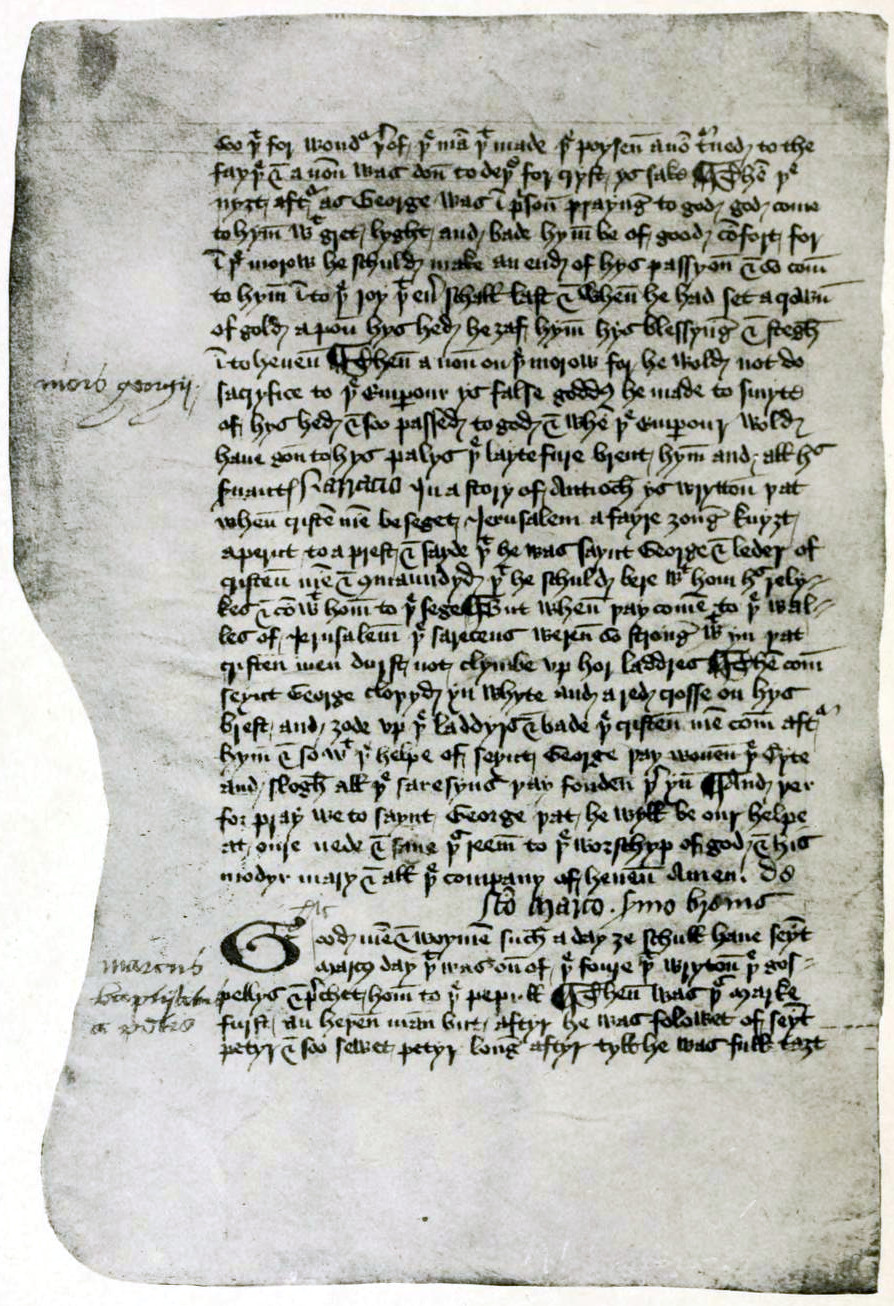 Soo þᵗ for wondᵃ þᵉof þᵉ mā þᵗ made þᵉ poysen anō t'ned to the
fayþ & anōn was don̄ to deþᵉ for cryst ys sake ¶ Thē þᵉ
nyȝt aftᵃ as George was ī p̱son praynḡ to god god come
to hym̄ wᵗ gret lyght and bade hym̄ be of good cōfort for
ī þᵉ morow he schuld make an end of hys passyon̄ & so com̄
to hym̄ ī to þᵉ joy þᵗ eu' schall last & when̄ he had set a crown̄
of gold apon hys hed he ȝaf hym̄ hys blessynḡ & stegh
ī to heuen̄ ¶ Then̄ anōn on þᵉ morow for he wold not do
mors georgij
sacryfice to þᵉ Emꝑour ys false goddꝭ he made to smyte
of hys hed & soo passed to god & whē þᵉ Emꝑour wold
haue gon to hys palys þᵉ layte fure brent hym̄ and all hˢ
s'uantꝭ Narracio In a story of Antioch ys wryton̄ þat
when̄ cristē mē beseget Jerusalem a fayre ȝonḡ knyȝt
aperut to a prest & sayde þᵗ he was saynt George & leder of
cristen̄ mē & ꝯmaundyd þᵗ he schuld bere wᵗ hom hˢ rely=
kes & cō wᵗ hom̄ to þᵉ sege ¶ But when þay comen̄ to þᵉ wal=
les of Jerusalem̄ þᵉ sarecens weren̄ so stronḡ wᵗ yn þat
cristen men durst not clymbe vp hor laddres ¶ Thē com̄
seynt George cloþyd yn whyte and a red crosse on hys
brest and ȝode vp þᵉ laddyrs & bade þᵉ cristen̄ mē com̄ aftᵃ
hym̄ & so wᵗ þᵉ helpe of seynt George þay wonen̄ þᵉ Cyte
and slogh̄ all þᵉ saresyns þay fonden þᵉ yn̄ ¶ And þer
for pray we to saynt George þat he wyll be our helpe
at oure nede & saue þˢ reem̄ to þᵉ worschyp of god & his
modyr mary & all þᵉ company of heuen̄ Amen. de
sc̄o Marco. s'mo breuis
Good mē & woymē such a day ȝe schull haue seyt̄
marcus
marcꝭ day þᵗ was on̄ of þᵉ foure þᵗ wryton̄ þᵉ gos=
pellys & p'chet hom̄ to þᵉ pepull ¶ Then̄ was þˢ Marke
furst an heþen man but aftyr he was folowet of seyt̄
petyr & soo sewet petyr lonḡ aftyr tyll he was full taȝt